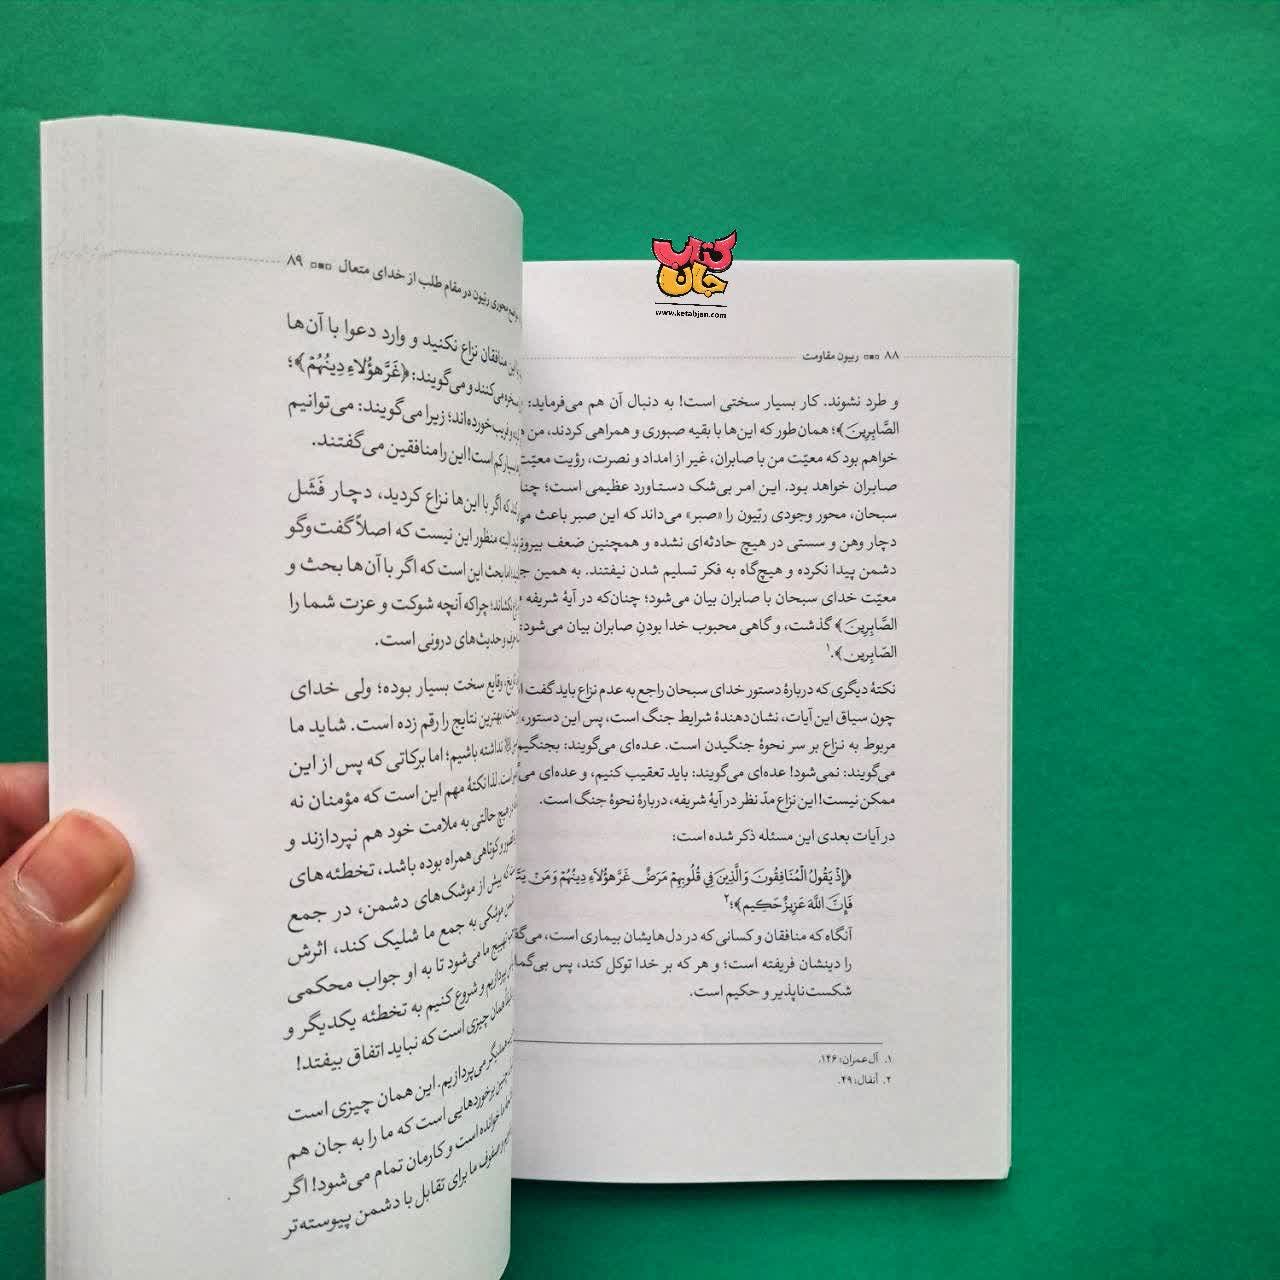 کتاب جان
www.ketabjan.com
۸۸ ربیون مقاومت
و طرد نشوند. کار بسیار سختی است! به دنبال آن هم می‌فرماید:
الصَّابِرِینَ﴾؛ همان‌طور که این‌ها با بقیه صبوری و همراهی کردند، من
خواهم بود که معیّت من با صابران، غیر از امداد و نصرت، رؤیت معیّت
صابران خواهد بود. این امر بی‌شک دستاورد عظیمی است؛
سبحان، محور وجودی ربّیون را «صبر» می‌داند که این صبر باعث
دچار وهن و سستی در هیچ حادثه‌ای نشده و همچنین ضعف
دشمن پیدا نکرده و هیچ‌گاه به فکر تسلیم شدن نیفتند. به همین
معیّت خدای سبحان با صابران بیان می‌شود؛ چنان‌که در آیهٔ شریفه
الصَّابِرِینَ﴾ گذشت، و گاهی محبوب خدا بودنِ صابران بیان می‌شود:
الصّابِرین﴾.۱
نکتهٔ دیگری که دربارهٔ دستور خدای سبحان راجع به عدم نزاع باید گفت
چون سیاق این آیات، نشان‌دهندهٔ شرایط جنگ است، پس این دستور،
مربوط به نزاع بر سر نحوهٔ جنگیدن است. عده‌ای می‌گویند: بجنگیم
می‌گویند: نمی‌شود! عده‌ای می‌گویند: باید تعقیب کنیم، و عده‌ای
ممکن نیست! این نزاع مدّ نظر در آیهٔ شریفه، دربارهٔ نحوهٔ جنگ است.
در آیات بعدی این مسئله ذکر شده است:
﴿إِذْ یَقُولُ الْمُنَافِقُونَ وَالَّذِینَ فِي قُلُوبِهِمْ مَرَضٌ غَرَّ هؤُلاَءِ دِینُهُمْ وَمَنْ
فَإِنَّ اللَّهَ عَزِیزٌ حَکِیم﴾؛۲
آنگاه که منافقان و کسانی که در دل‌هایشان بیماری است،
را دینشان فریفته است؛ و هر که بر خدا توکل کند، پس
شکست‌ناپذیر و حکیم است.
۱. آل‌عمران: ۱۴۶.
۲. انفال: ۴۹.
محوری ربّیون در مقام طلب از خدای متعال ۸۹
منافقان نزاع نکنید و وارد دعوا با آن‌ها
می‌کنند و می‌گویند: ﴿غَرَّ هؤُلاءِ دِینُهُمْ﴾؛
فریب خورده‌اند؛ زیرا می‌گویند: می‌توانیم
کم است! این را منافقین می‌گفتند.
که اگر با این‌ها نزاع کردید، دچار فَشَل
البته منظور این نیست که اصلاً گفت‌وگو
اما بحث این است که اگر با آن‌ها بحث و
چراکه آنچه شوکت و عزت شما را
و حدیث‌های درونی است.
وقایع سخت بسیار بوده؛ ولی خدای
بهترین نتایج را رقم زده است. شاید ما
نداشته باشیم؛ اما برکاتی که پس از این
لذا نکتهٔ مهم این است که مؤمنان نه
در هیچ حالتی به ملامت خود هم نپردازند و
و کوتاهی همراه بوده باشد، تخطئه‌های
بیش از موشک‌های دشمن، در جمع
موشکی به جمع ما شلیک کند، اثرش
تهییج ما می‌شود تا به او جواب محکمی
بپردازیم و شروع کنیم به تخطئه یکدیگر و
همان چیزی است که نباید اتفاق بیفتد!
می‌پردازیم. این همان چیزی است
برخوردهایی است که ما را به جان هم
خوانده است و کارمان تمام می‌شود! اگر
صفوف ما برای تقابل با دشمن پیوسته‌تر